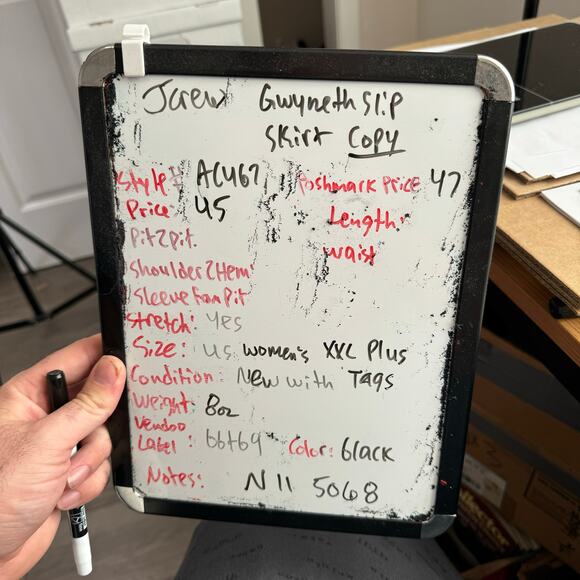 Jcrew Gwyneth slip
skirt Copy
Style# AC467 Poshmark Price 47
Price: 45 Length:
Pit2Pit. waist
Shoulder2Hem:
Sleeve From Pit
Stretch: Yes
Size: US women's XXL Plus
Condition: New with Tags
Weight: 8oz
Vendoo
Label: 66+69 Color: black
Notes: N11 5068